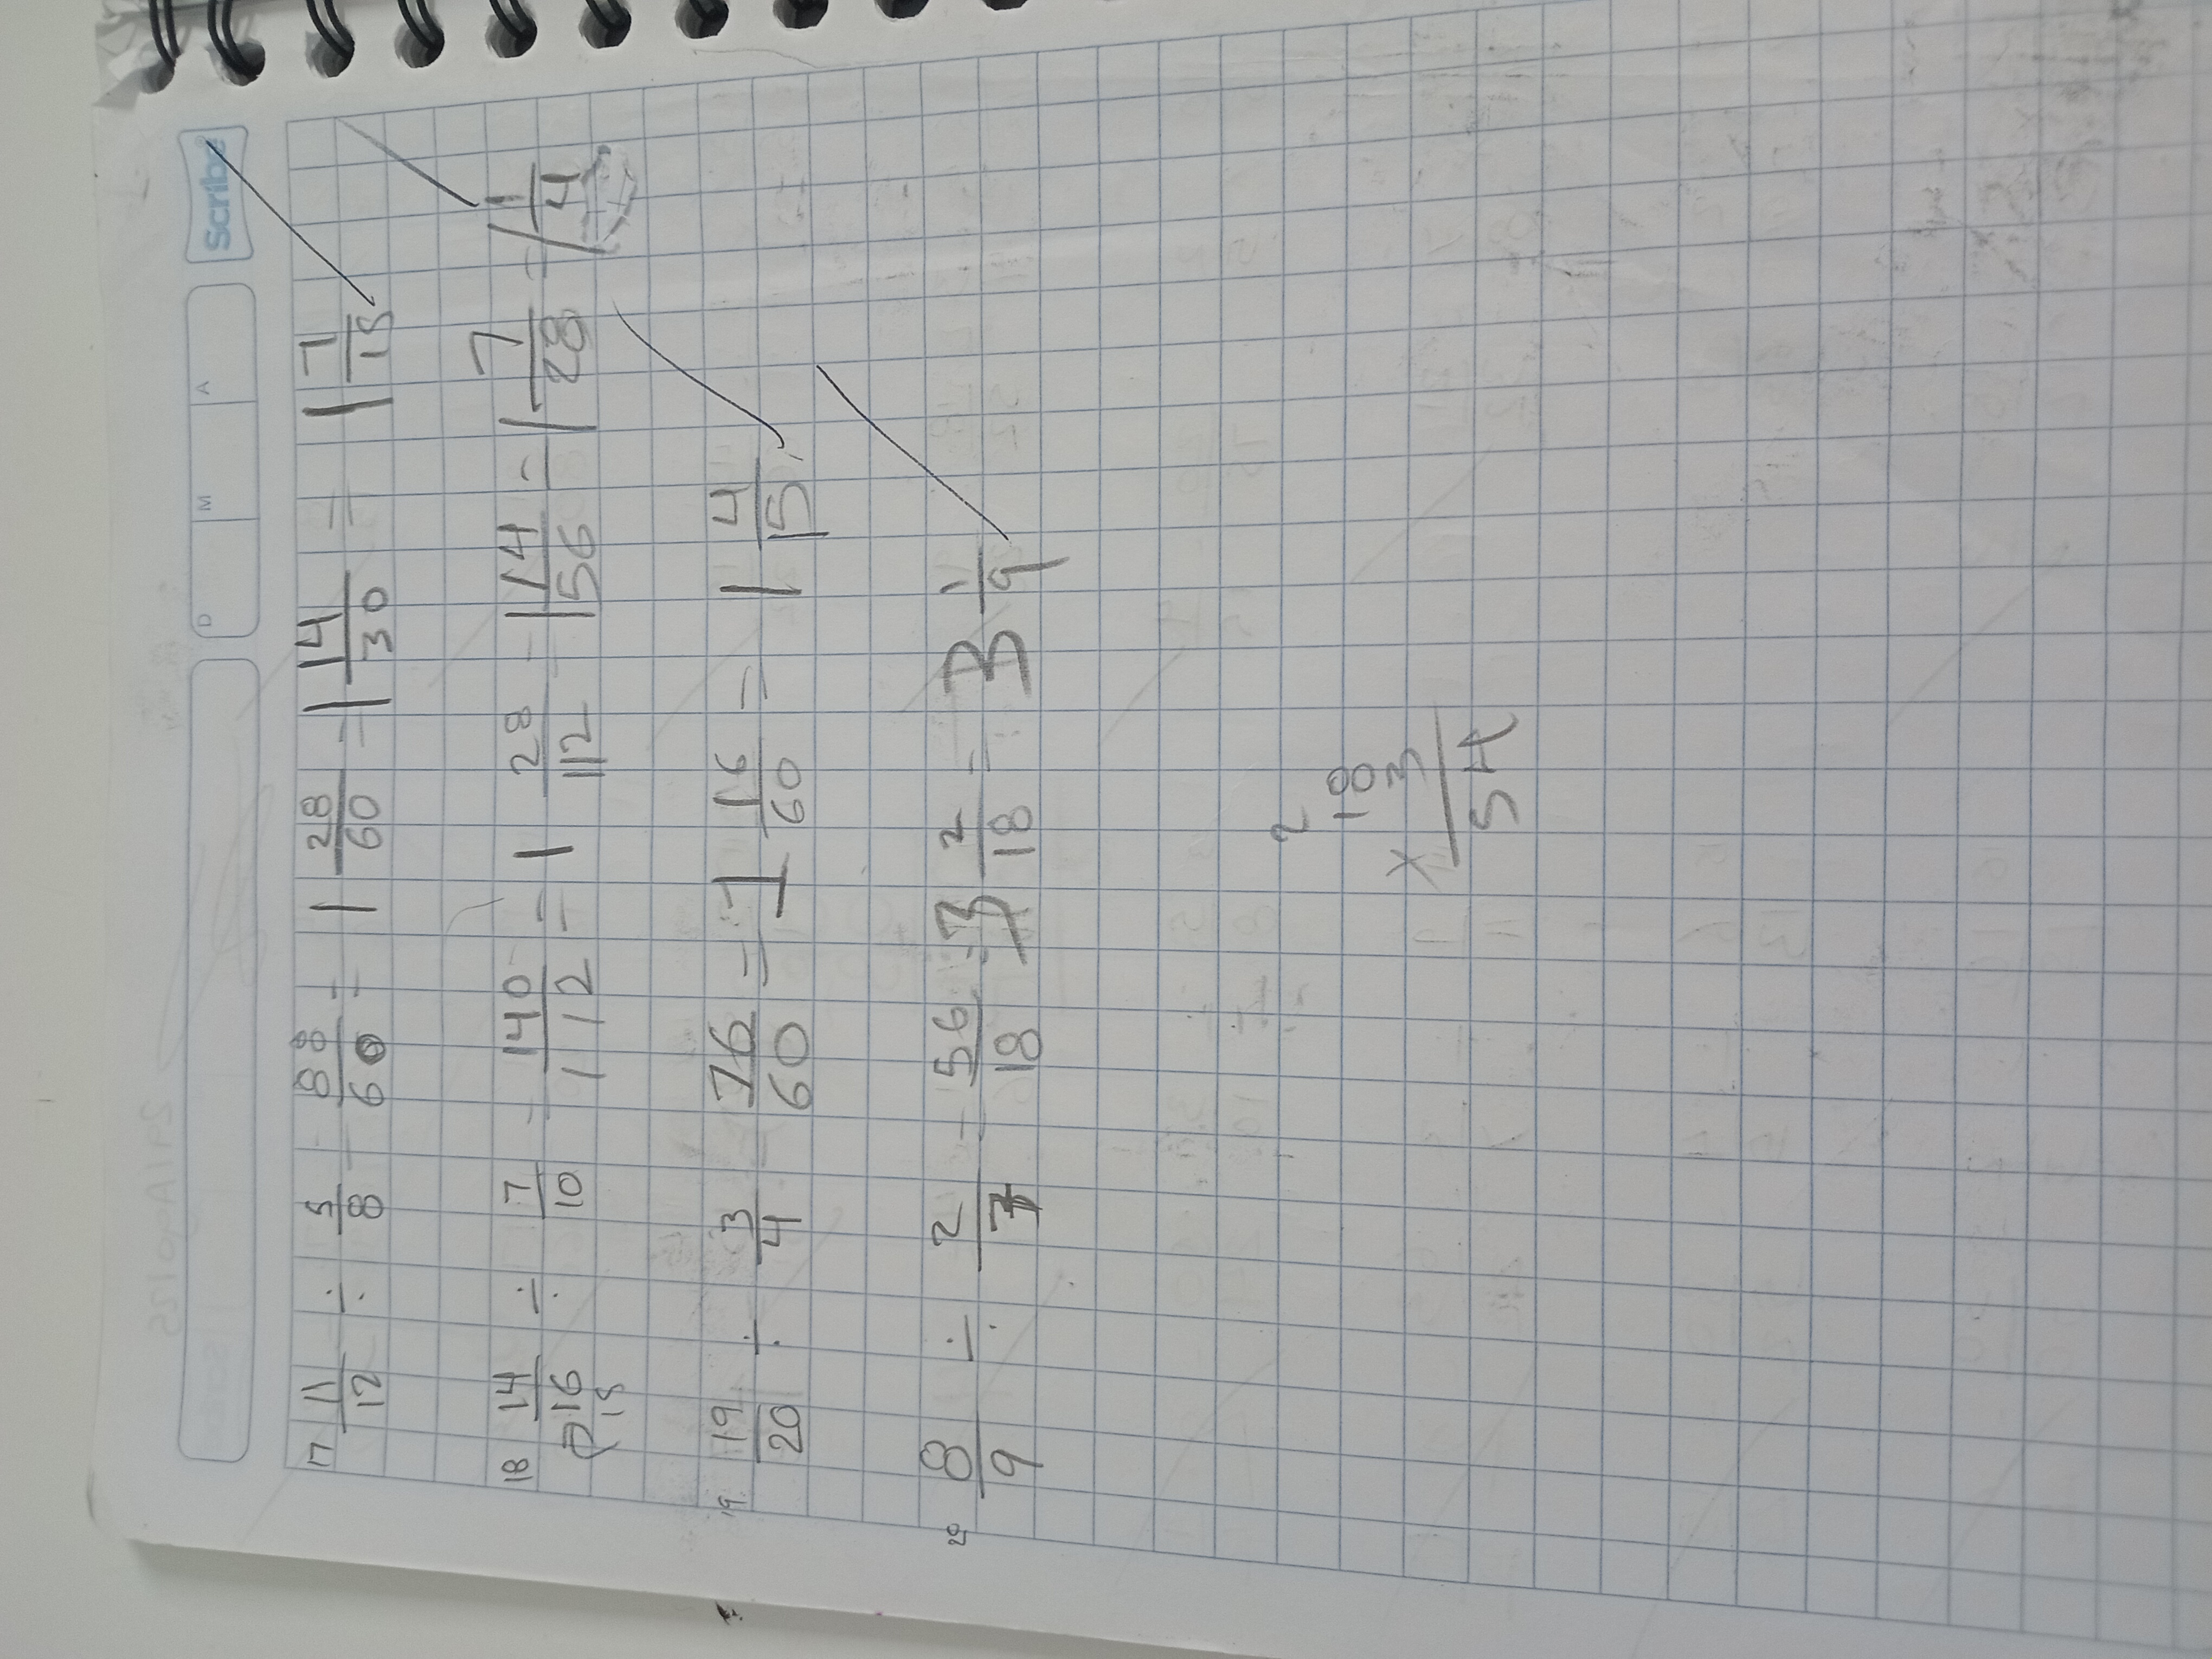 Scribe
D M A
17 11/12 ÷ 5/8 = 88/60 = 1 28/60 = 1 14/30 = 1 7/15
18 14/16 ÷ 7/10 = 140/112 = 1 28/112 = 1 14/56 = 1 7/28 = 1 1/4
15
19 19/20 ÷ 3/4 = 76/60 = 1 16/60 = 1 4/15
20 8/9 ÷ 2/7 = 56/18 = 3 2/18 = 3 1/9
2
18
x 3
54